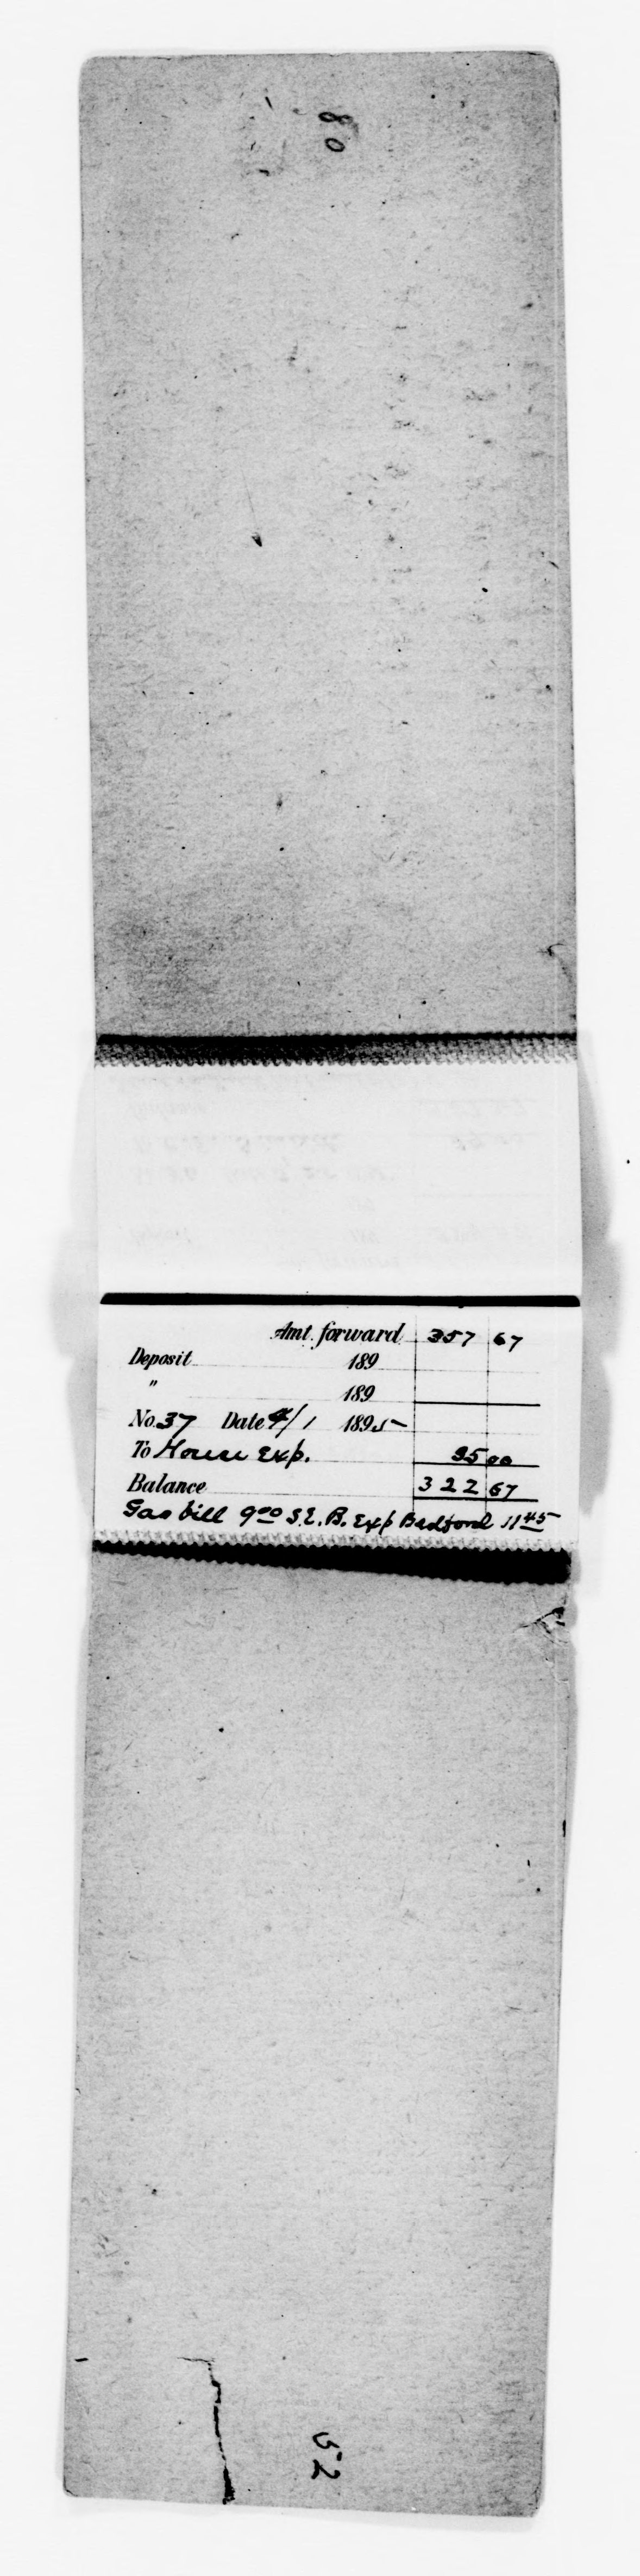 80
Amt. forward 357 67
Deposit 189
" 189
No. 37 Date 4/1 1895
To House Exp. 35 00
Balance 322 67
Gas bill 9 00 S.E.B. Exp Bedford 11 45
52